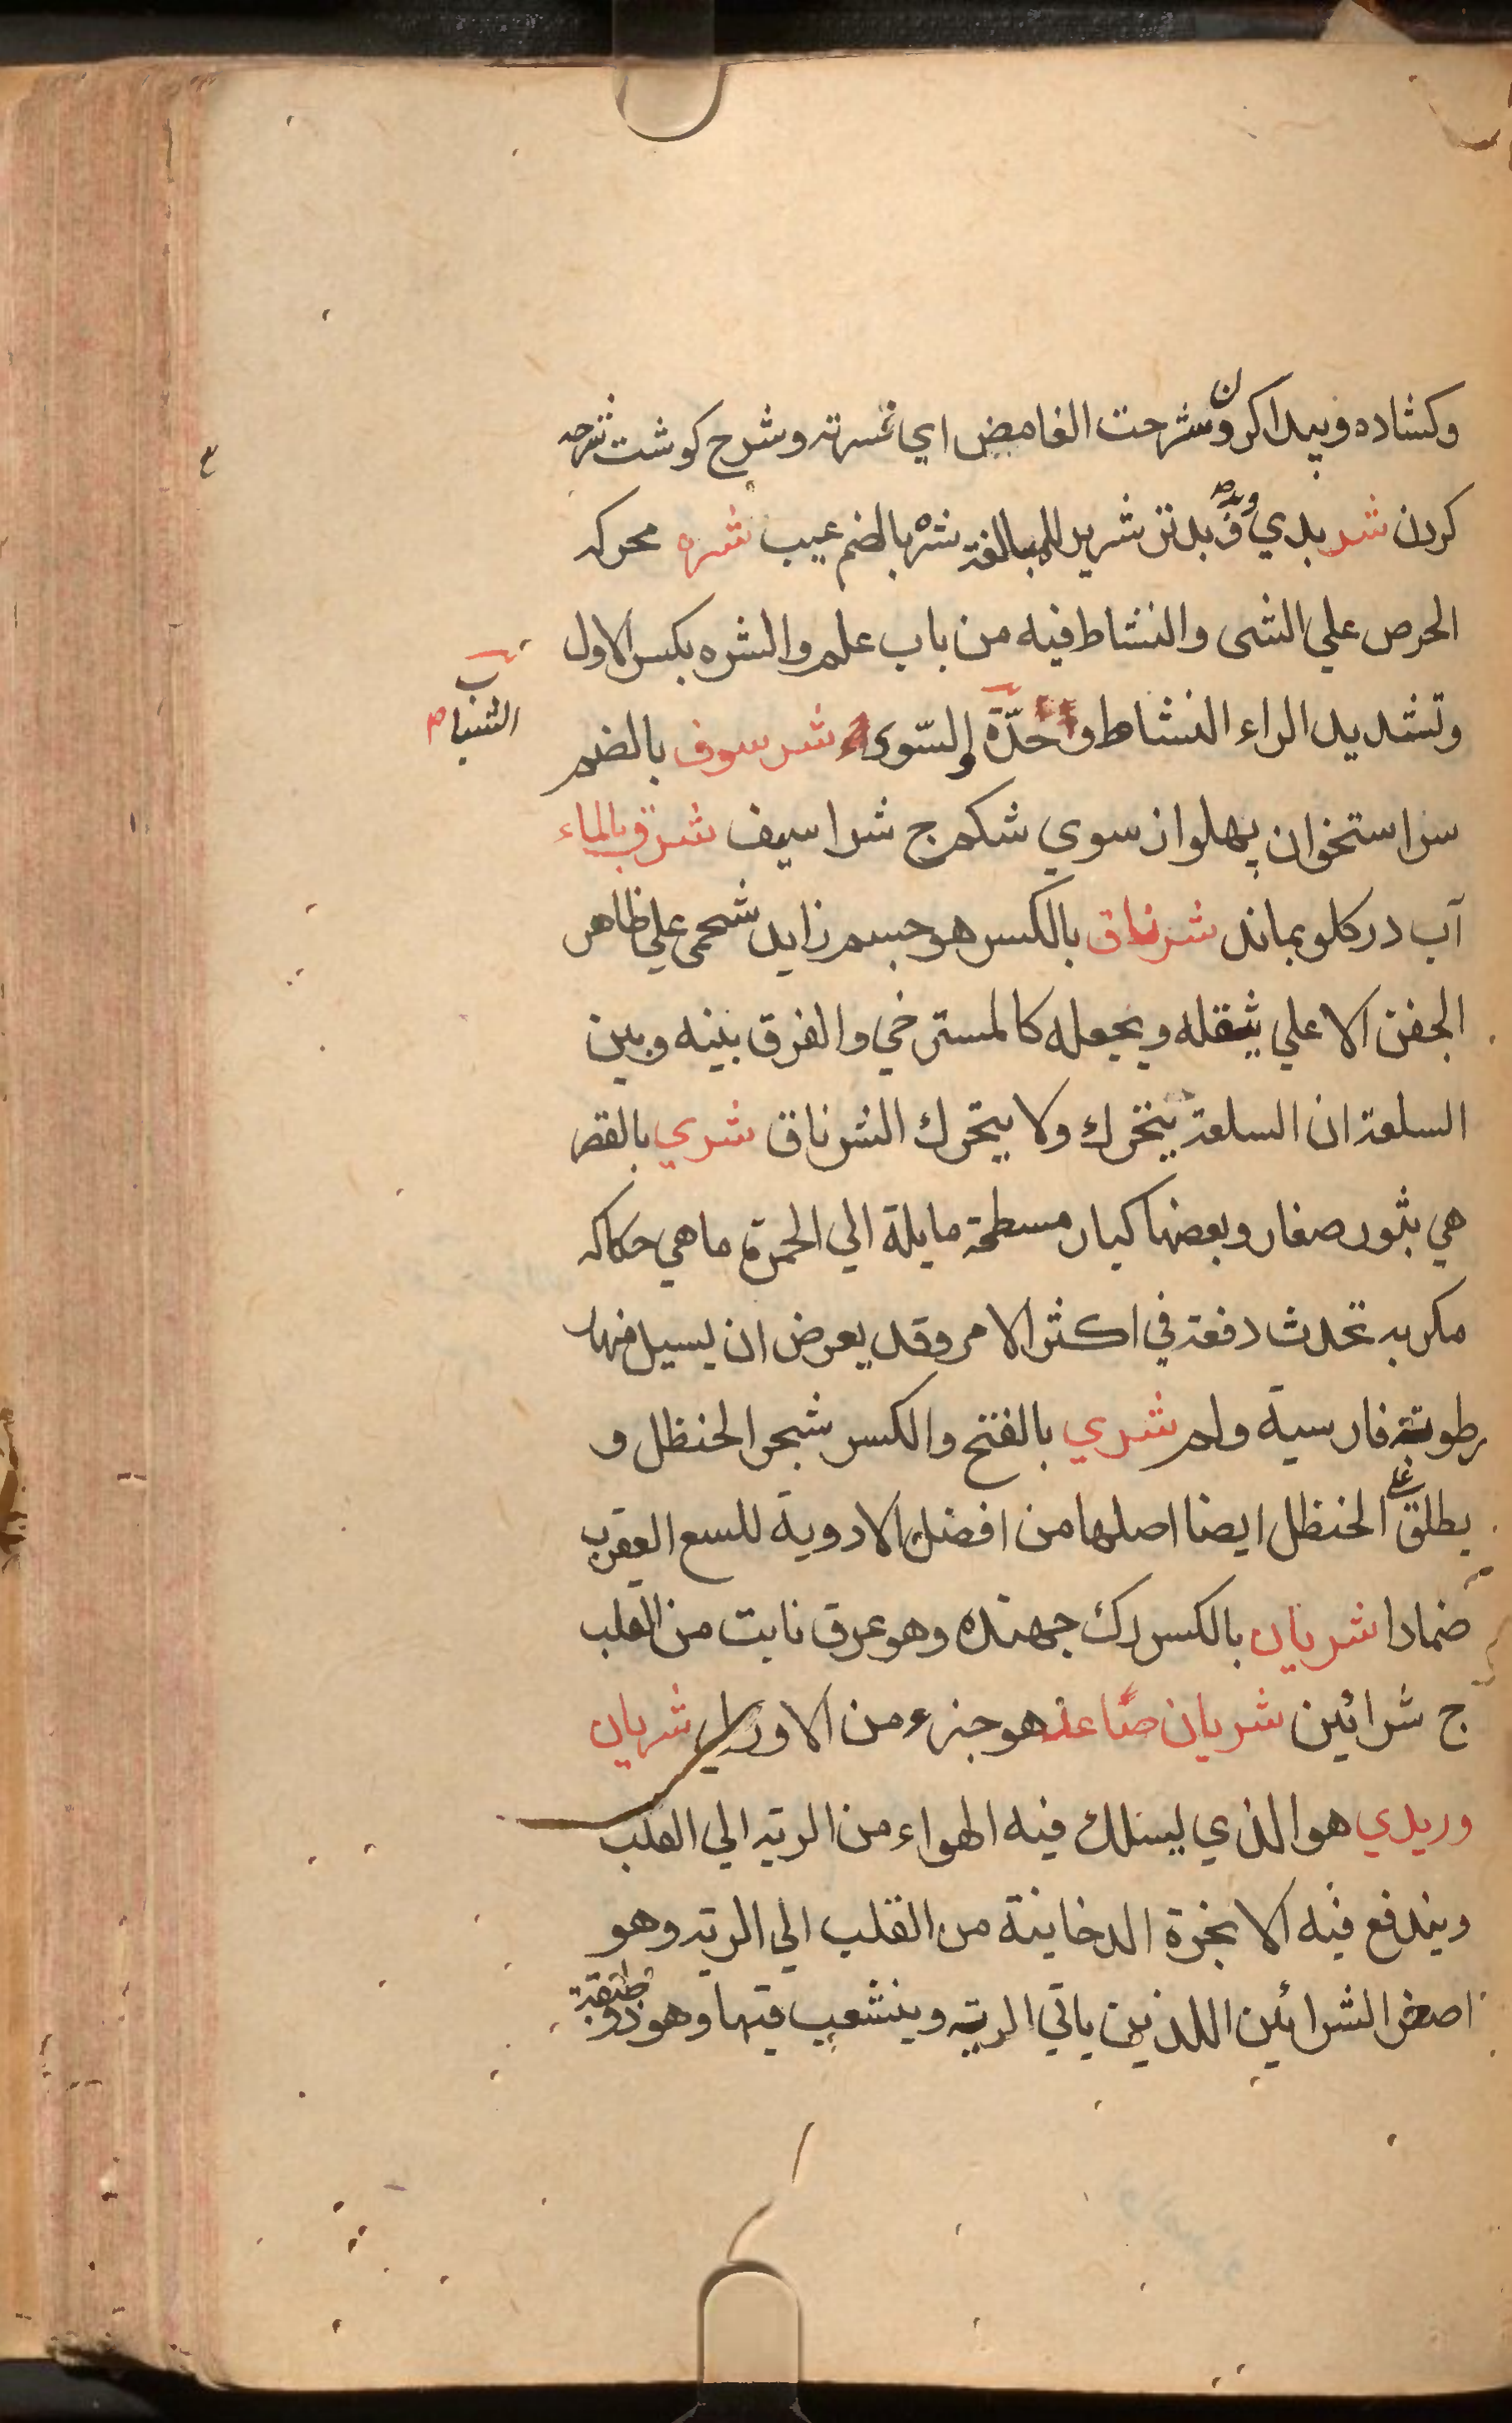 وكشاده و پيدا كردن وشرحت الغامض اي فسرته وشرح كوشت شرحه
كردن شر بدي وبد وق بدتن شرير للمبالغة شره بالضم عيب شره محركه
الحرص علي الشى والنشاط فيه من باب علم والشره بكسر الاول
وتشديد الراء النشاط و حدّة السّوى شرسوف بالضم
الشباب
سراستخوان پهلو از سوي شكم ج شراسيف شرق بالماء
آب در كلو بماند شرناق بالكسر هو جسم زايد شحمى علي ظاهر
الجفن الاعلي يثقله ويجعله كالمسترخي والفرق بينه وبين
السلعة ان السلعة يتحرك ولا يتحرك الشرناق شري بالقصر
هي بثور صغار وبعضها كبار مسطحة مايلة الي الحمرة ما هي حكاكه
مكربه تحدث دفعة في اكثر الامر وقد يعرض ان يسيل منها
رطوبة فارسية ولم شري بالفتح والكسر شجر الحنظل و
يطلق علي الحنظل ايضا اصلها من افضل الادوية للسع العقرب
ضمادا شريان بالكسر رك جهنده وهو عرق نابت من القلب
ج شرائين شريان صاعد هو جزء من الاورطي شريان
وريدي هو الذي يسلك فيه الهواء من الريه الي القلب
ويندفع فيه الابخرة الدخانية من القلب الي الريه وهو
اصغر الشرائين اللذين ياتي الرية وينشعب فيها وهو ذو طبقة